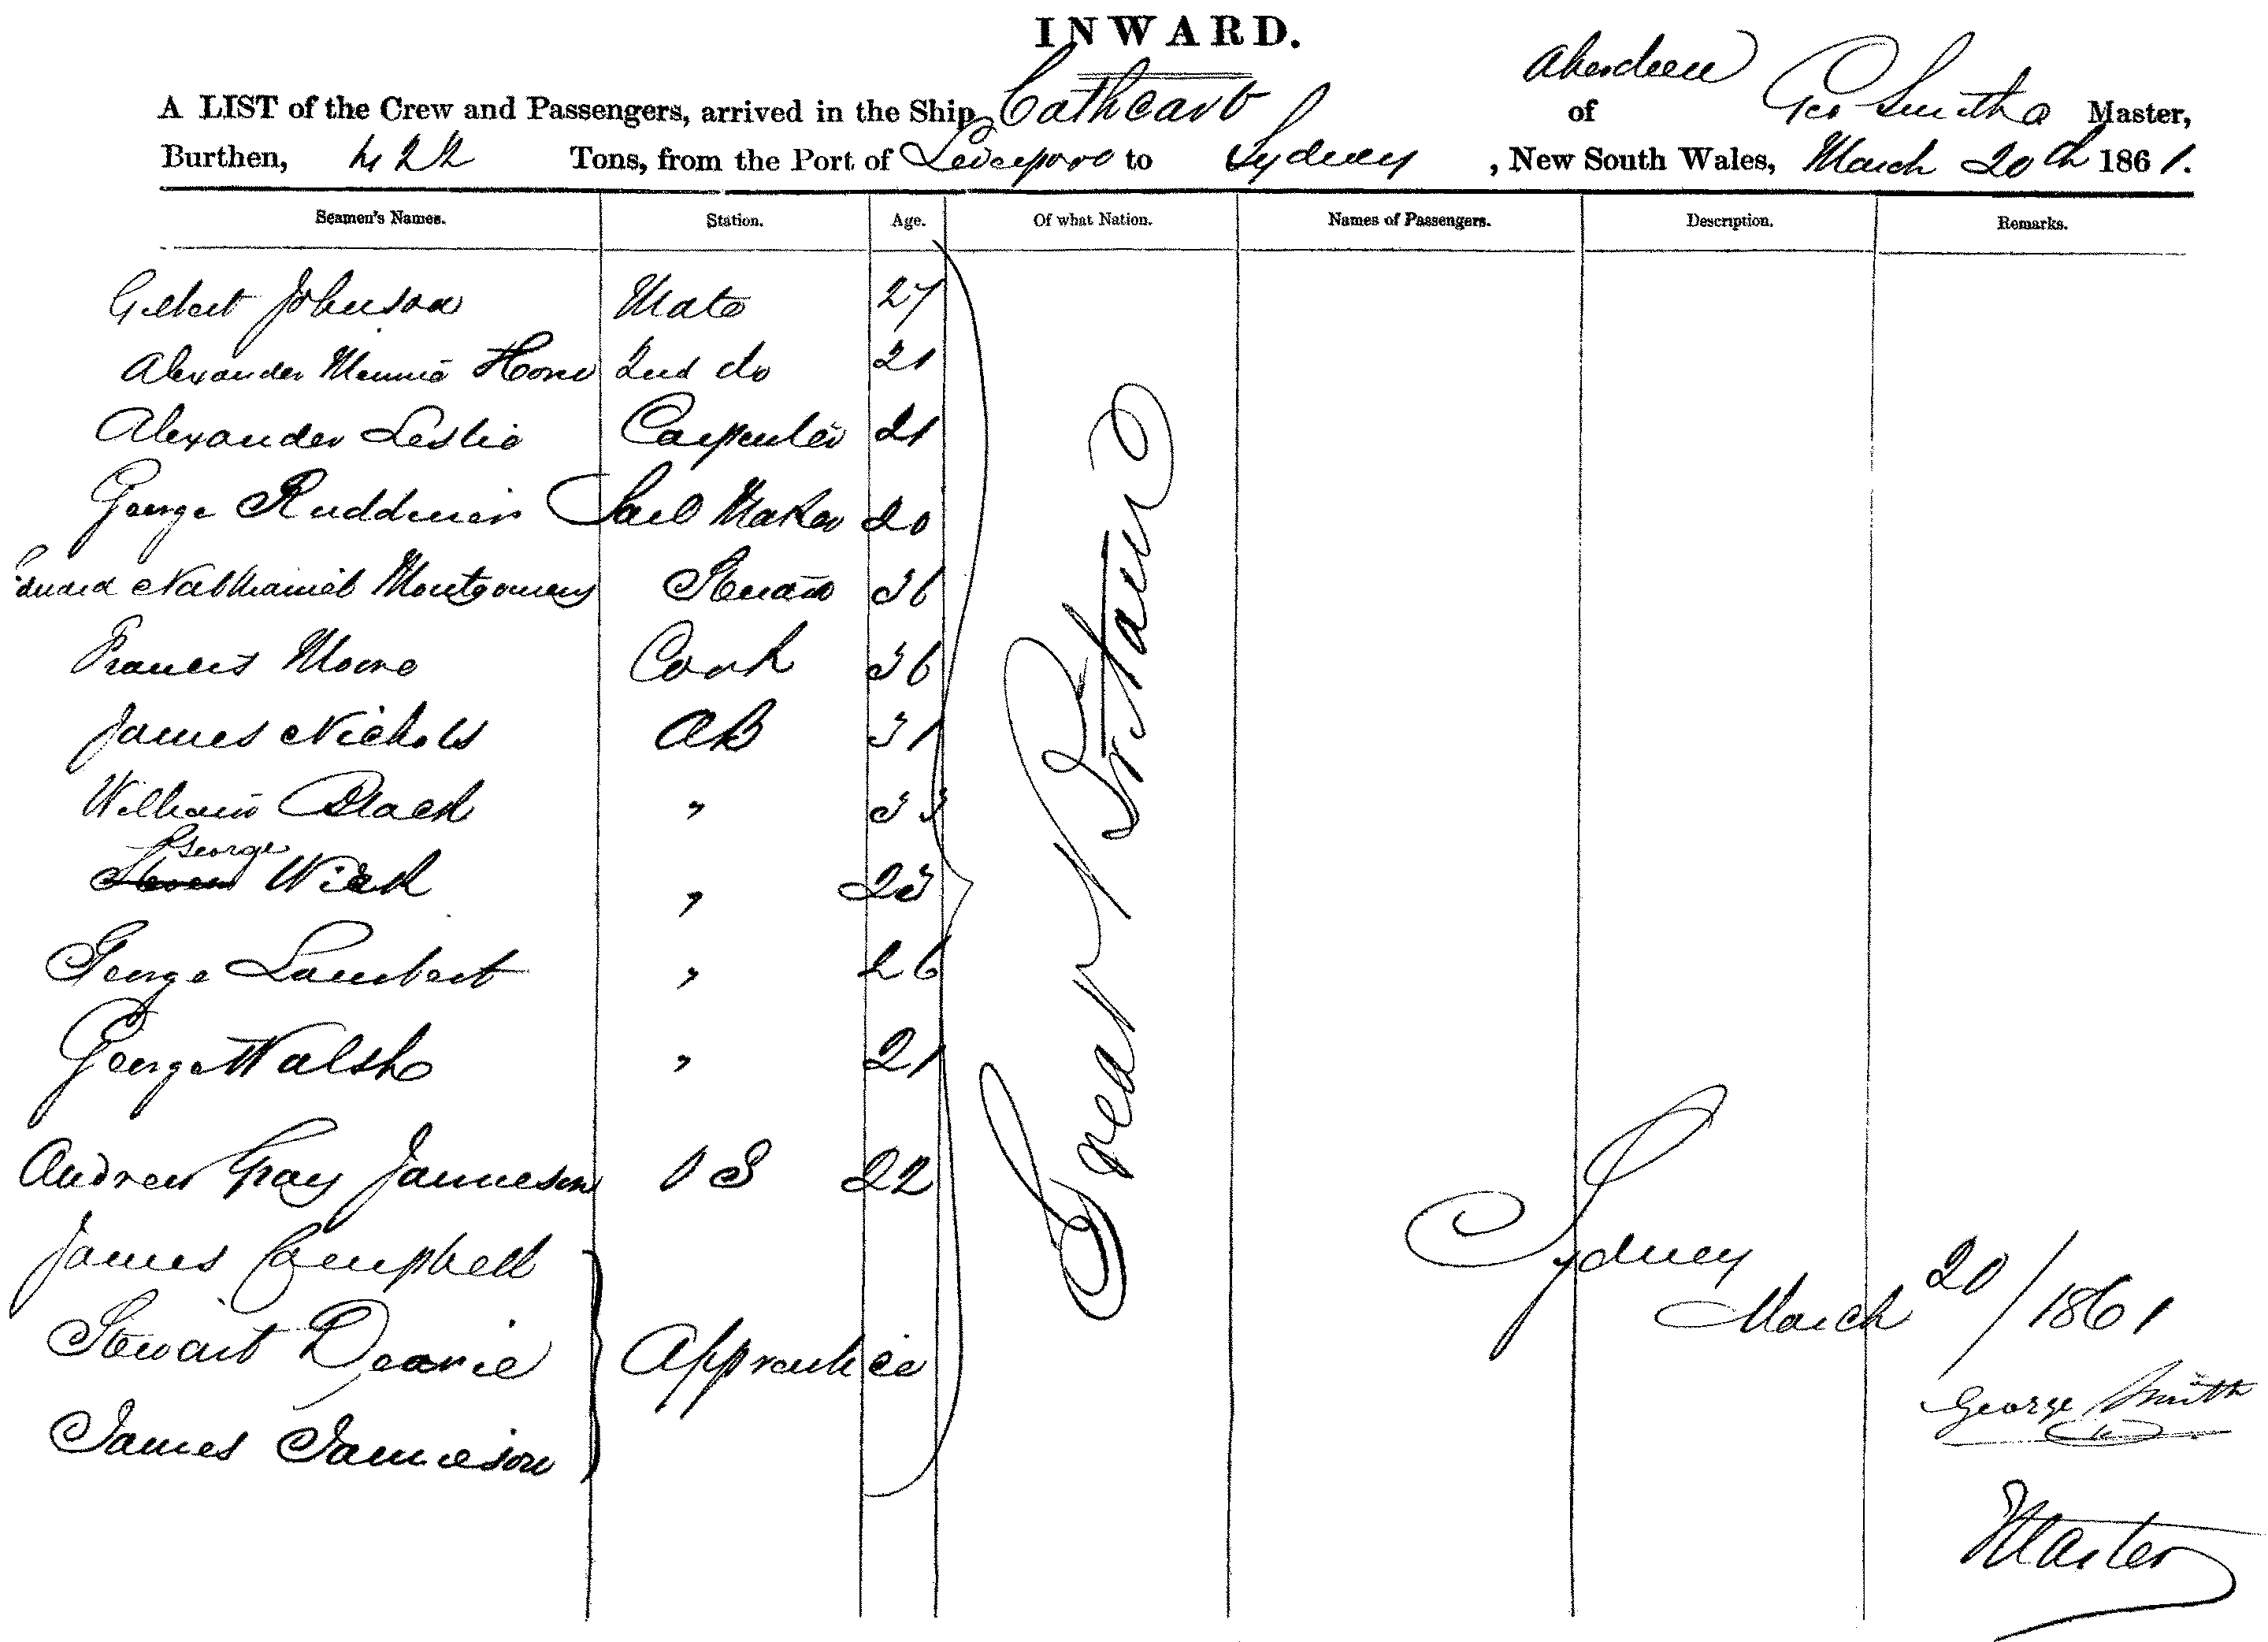 INWARD.
A LIST of the Crew and Passengers, arrived in the Ship Cathcart of Aberdeen Geo Smith Master,
Burthen, 422 Tons, from the Port of Liverpool to Sydney, New South Wales, March 20th 1861.
Seamen's Names. Station. Age. Of what Nation. Names of Passengers. Description. Remarks.
Gilbert Johnson Mate 27
Alexander Hone 2nd do 21
Alexander Leslie Carpenter 21
George Ruddiman Sail Maker 20
Edward Nathaniel Montgomery Steward 36
Francis Moore Cook 36
James Nichols AB 31
William Black " 33
George
Steven Wick " 23
George Lambert " 26
George Walsh " 21
Great Britain
Andrew Gray Jamieson OS 22
James Campbell
Stewart Dearie Apprentice
James Jamieson
Sydney
March 20/1861
George Smith
Master